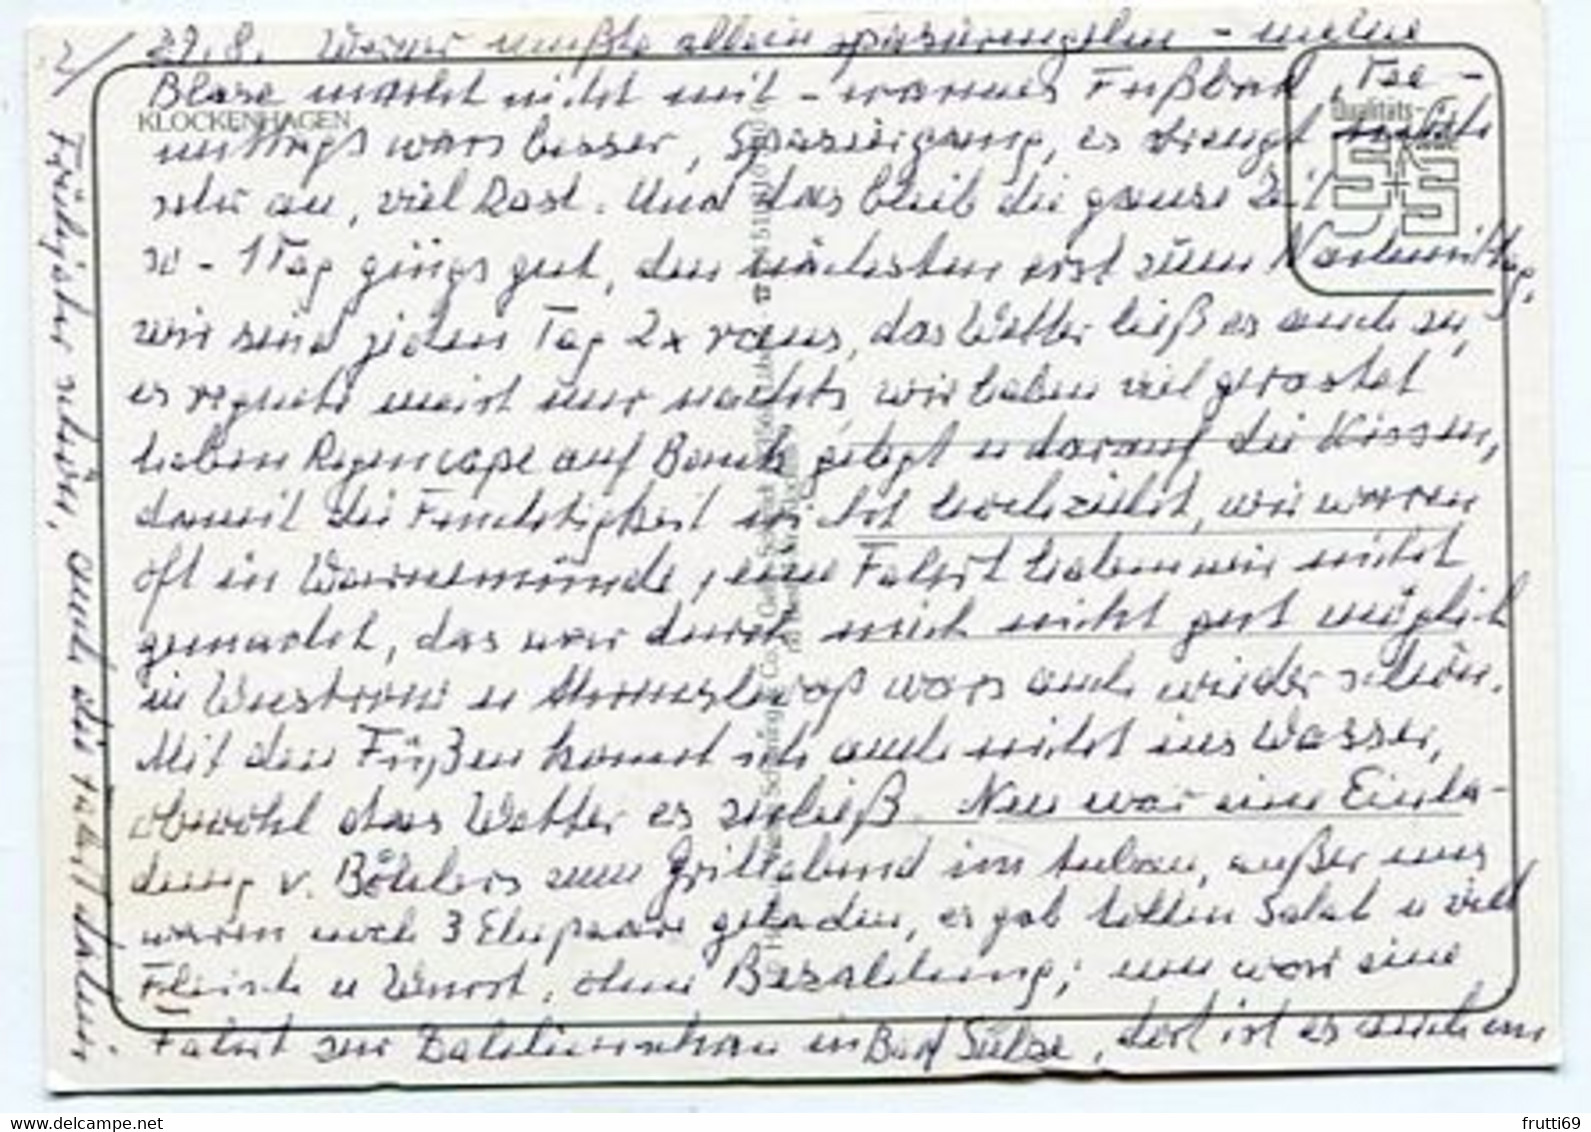 2/ 29.8. Werner mußte allein spazierengehen – meine
Blase macht nicht mit – warmes Fußbad, Tee –
KLOCKENHAGEN
Qualitäts-
mittags wars besser, Spaziergang, es strengt
sehr an, viel Rast. Und das blieb die ganze Zeit
so – 1 Tag gings gut, den nächsten erst zum Nachmittag,
wir sind jeden Tag 2x raus, das Wetter ließ es auch zu,
es regnete meist nur nachts, wir haben viel gerastet
haben Regencape auf Bank gelegt u darauf die Kissen,
damit die Feuchtigkeit nicht hochzieht, wir waren
oft in Warnemünde, eine Fahrt haben wir nicht
gemacht, das war durch mich nicht gut möglich
in Wustrow u Ahrenshoop wars auch wieder schön.
Mit den Füßen konnt ich auch nicht ins Wasser,
obwohl das Wetter es zuließ. Nun war eine Einla-
dung v. Böhlers zum Grillabend im
außer uns
waren noch 3 Ehepaare geladen, es gab tollen Salat u viel
Fleisch u Wurst, ohne Bezahlung; nun war eine
Fahrt zur Dahlienschau in Bad Sülze, dort ist es auch im
Frühjahr schön, auch die
dahin.
frutti69
www.delcampe.net